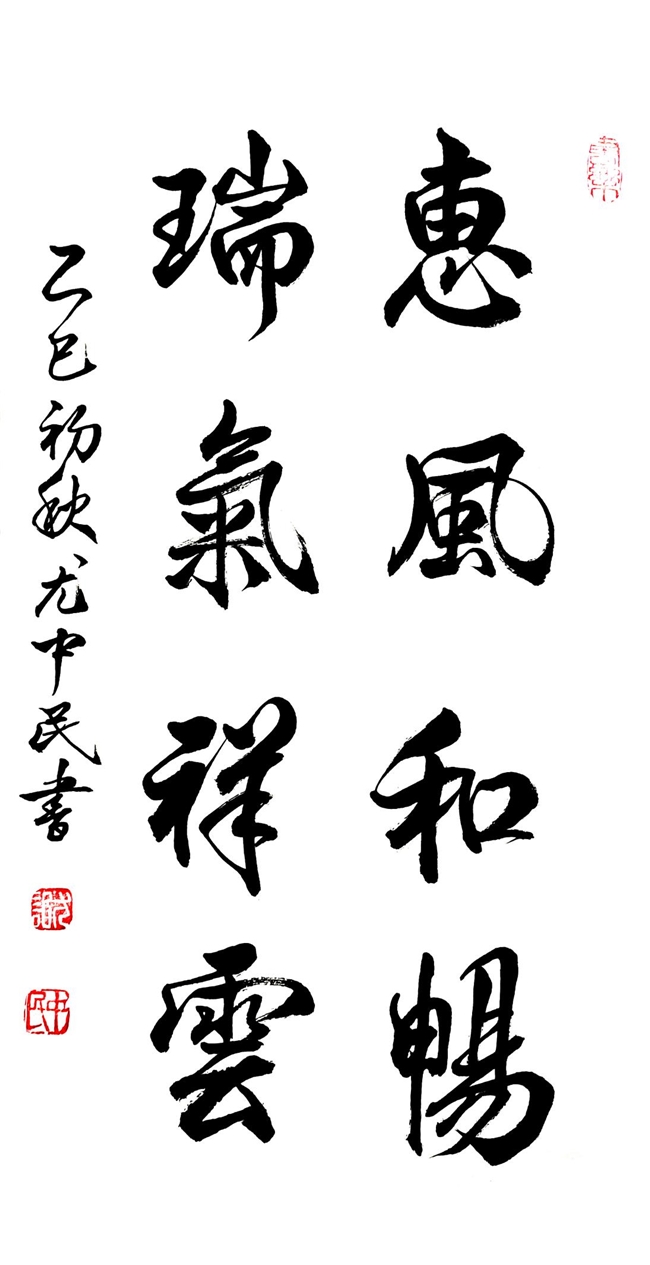 惠風和暢
瑞氣祥雲
乙巳初秋尤中民書